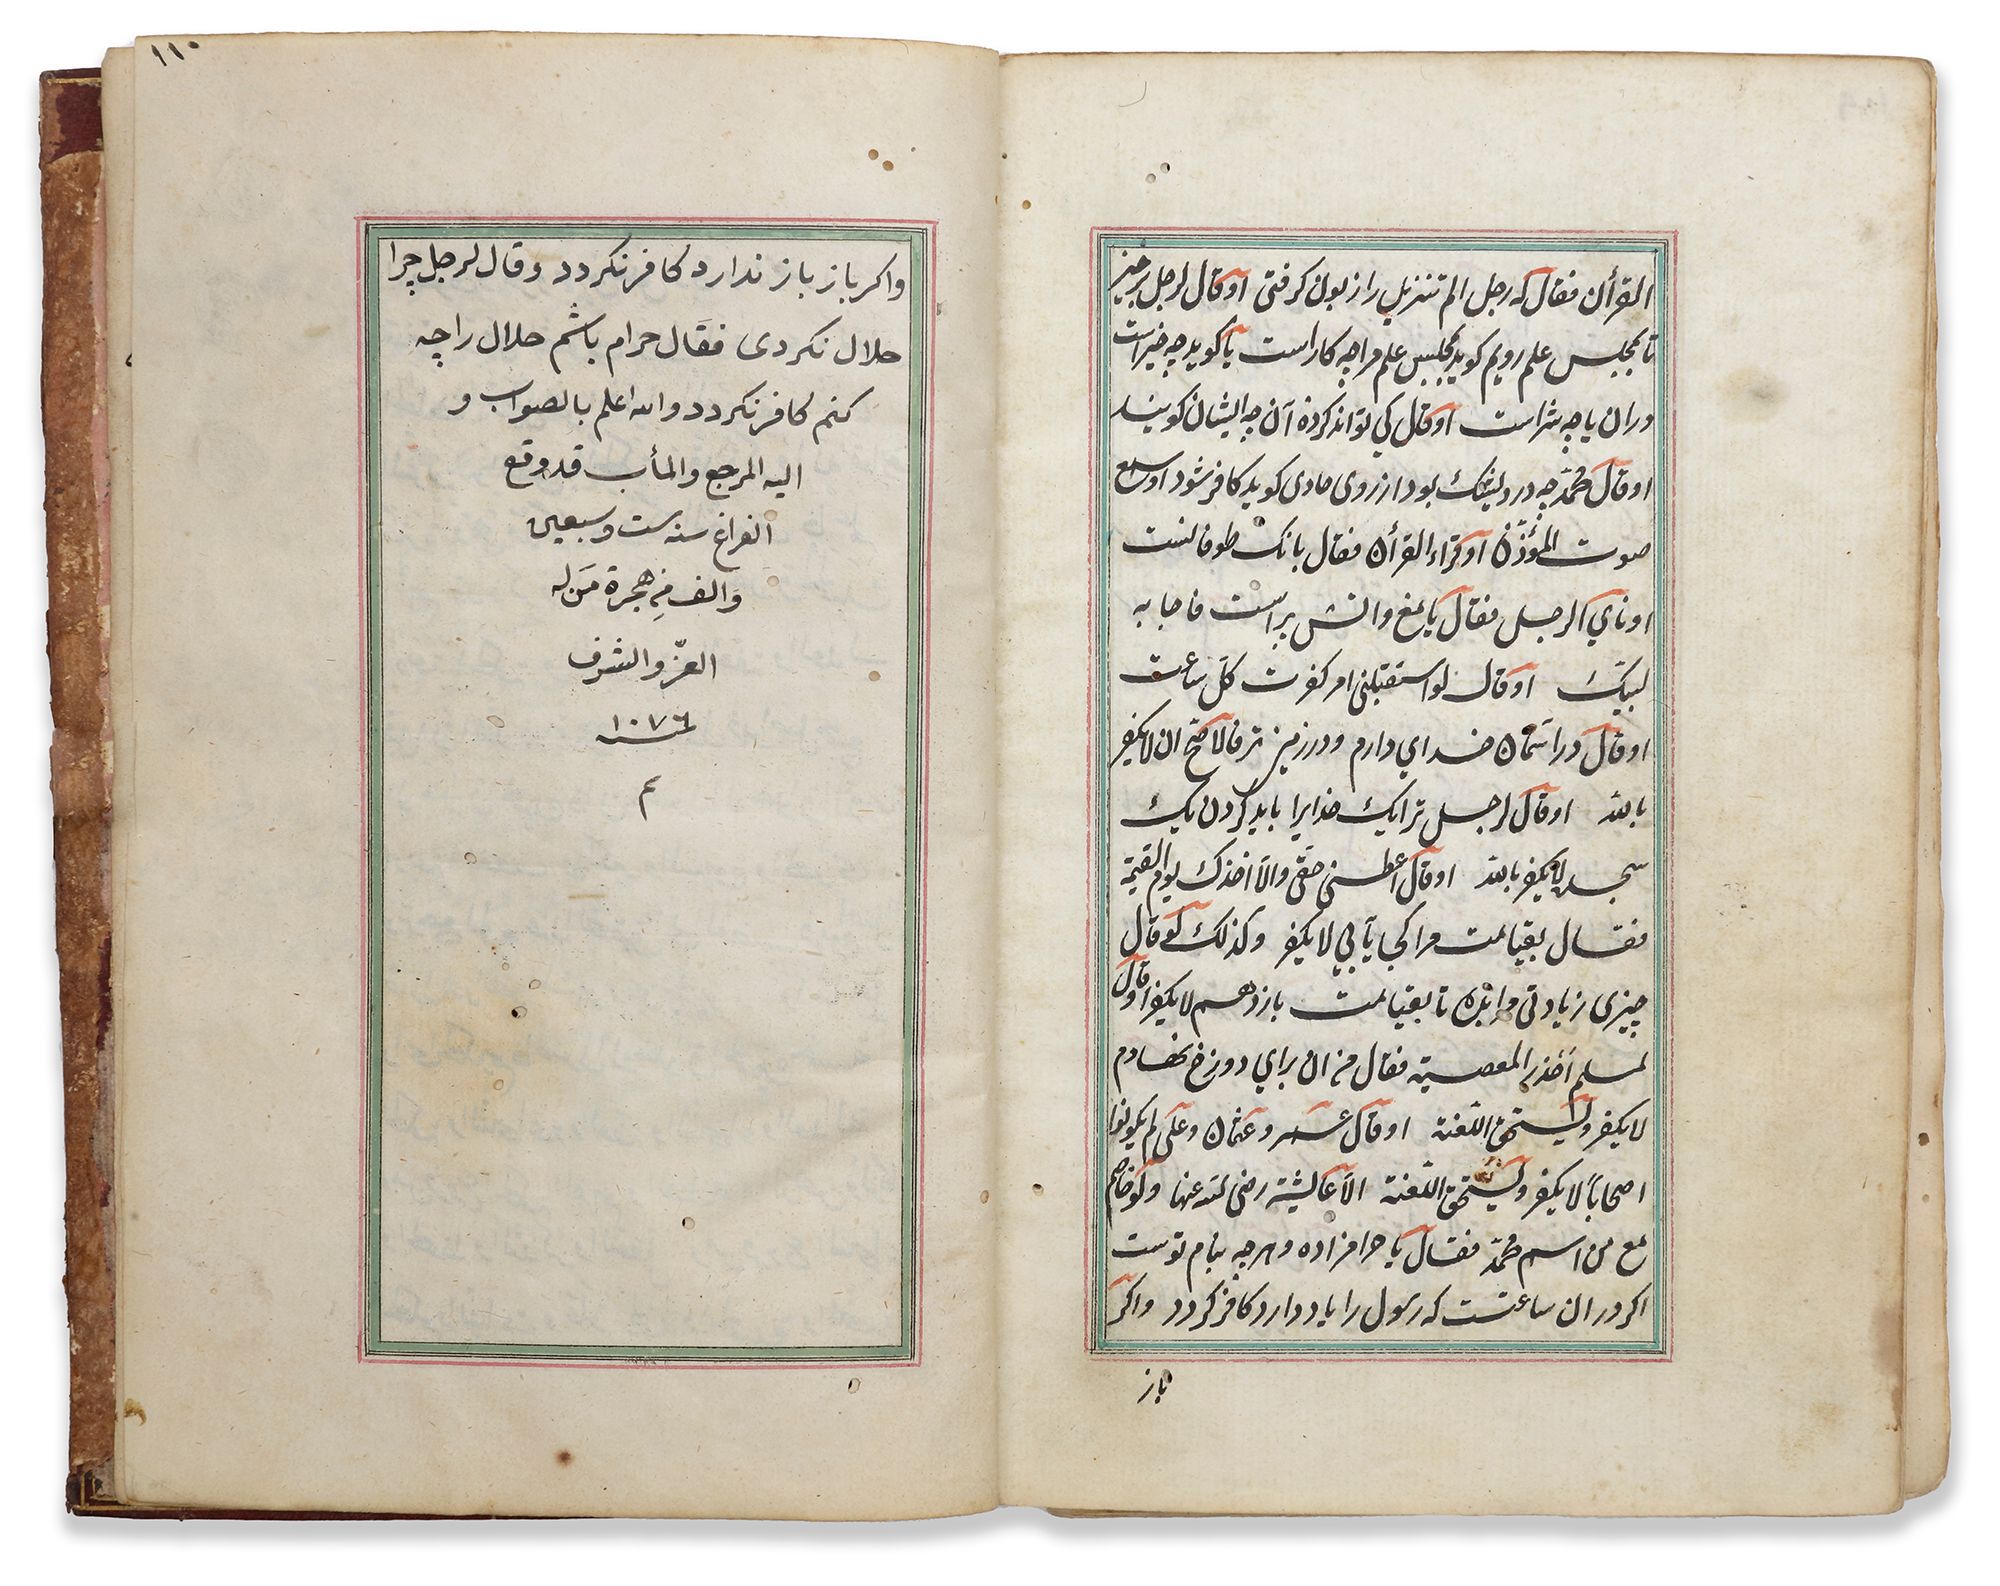 القرأن فقال که رجل الم تنزیل را زبون کرفتی او قال لرجل برخیز
تا بمجلس علم رویم کوید بمجلس علم مرا چه کار است یا کوید چه خیر است
در ان یا چه شر است او قال کی تواند کرده آن چه ایشان کویند
او قال محمد چه درویشک بود از روی کوید کافر شود او سمع
صوت المؤذن او قراء القرأن فقال بانک طوفانست
او نادی الرجل فقال یا مغ فاجابه
لبیک او قال لو استقبلنی امر کفرت کل ساعت
او قال در اسمان خدای دارم و در زمین ترا فالاصح ان لا یکفر
بالله او قال لرجل ترا یک خدایرا باید کردن یک
سجده لا یکفر بالله او قال اعطنی حقی والا اخذک یوم القیمة
فقال بقیامت مرا کجا یابی لا یکفر و کذلک لو قال
چیزی زیادتی مرا بده تا بقیامت باز دهم لا یکفر او قال
لمسلم اخذ المعصیة فقال من ان برای دوزخ نهادم
لا یکفر و یستحق اللعنة او قال عمر و عثمان و علی لم یکونوا
اصحابا لا یکفر و یستحق اللعنة الا عایشة رضی الله عنها ولو خاصم
مع من اسم محمد فقال یا حرامزاده و هرچه بنام توست
اکر در ان ساعت که رسول را یاد دارد کافر کردد واکر
باز
١١٠
واکر باز باز ندارد کافر نکردد وقال لرجل چرا
حلال نکردی فقال حرام باشم حلال را چه
کنم کافر نکردد والله اعلم بالصواب و
الیه المرجع والمأب قد وقع
الفراغ سنه ست وسبعین
والف من هجرة من له
العز والشرف
سنه ١٠٧٦
م